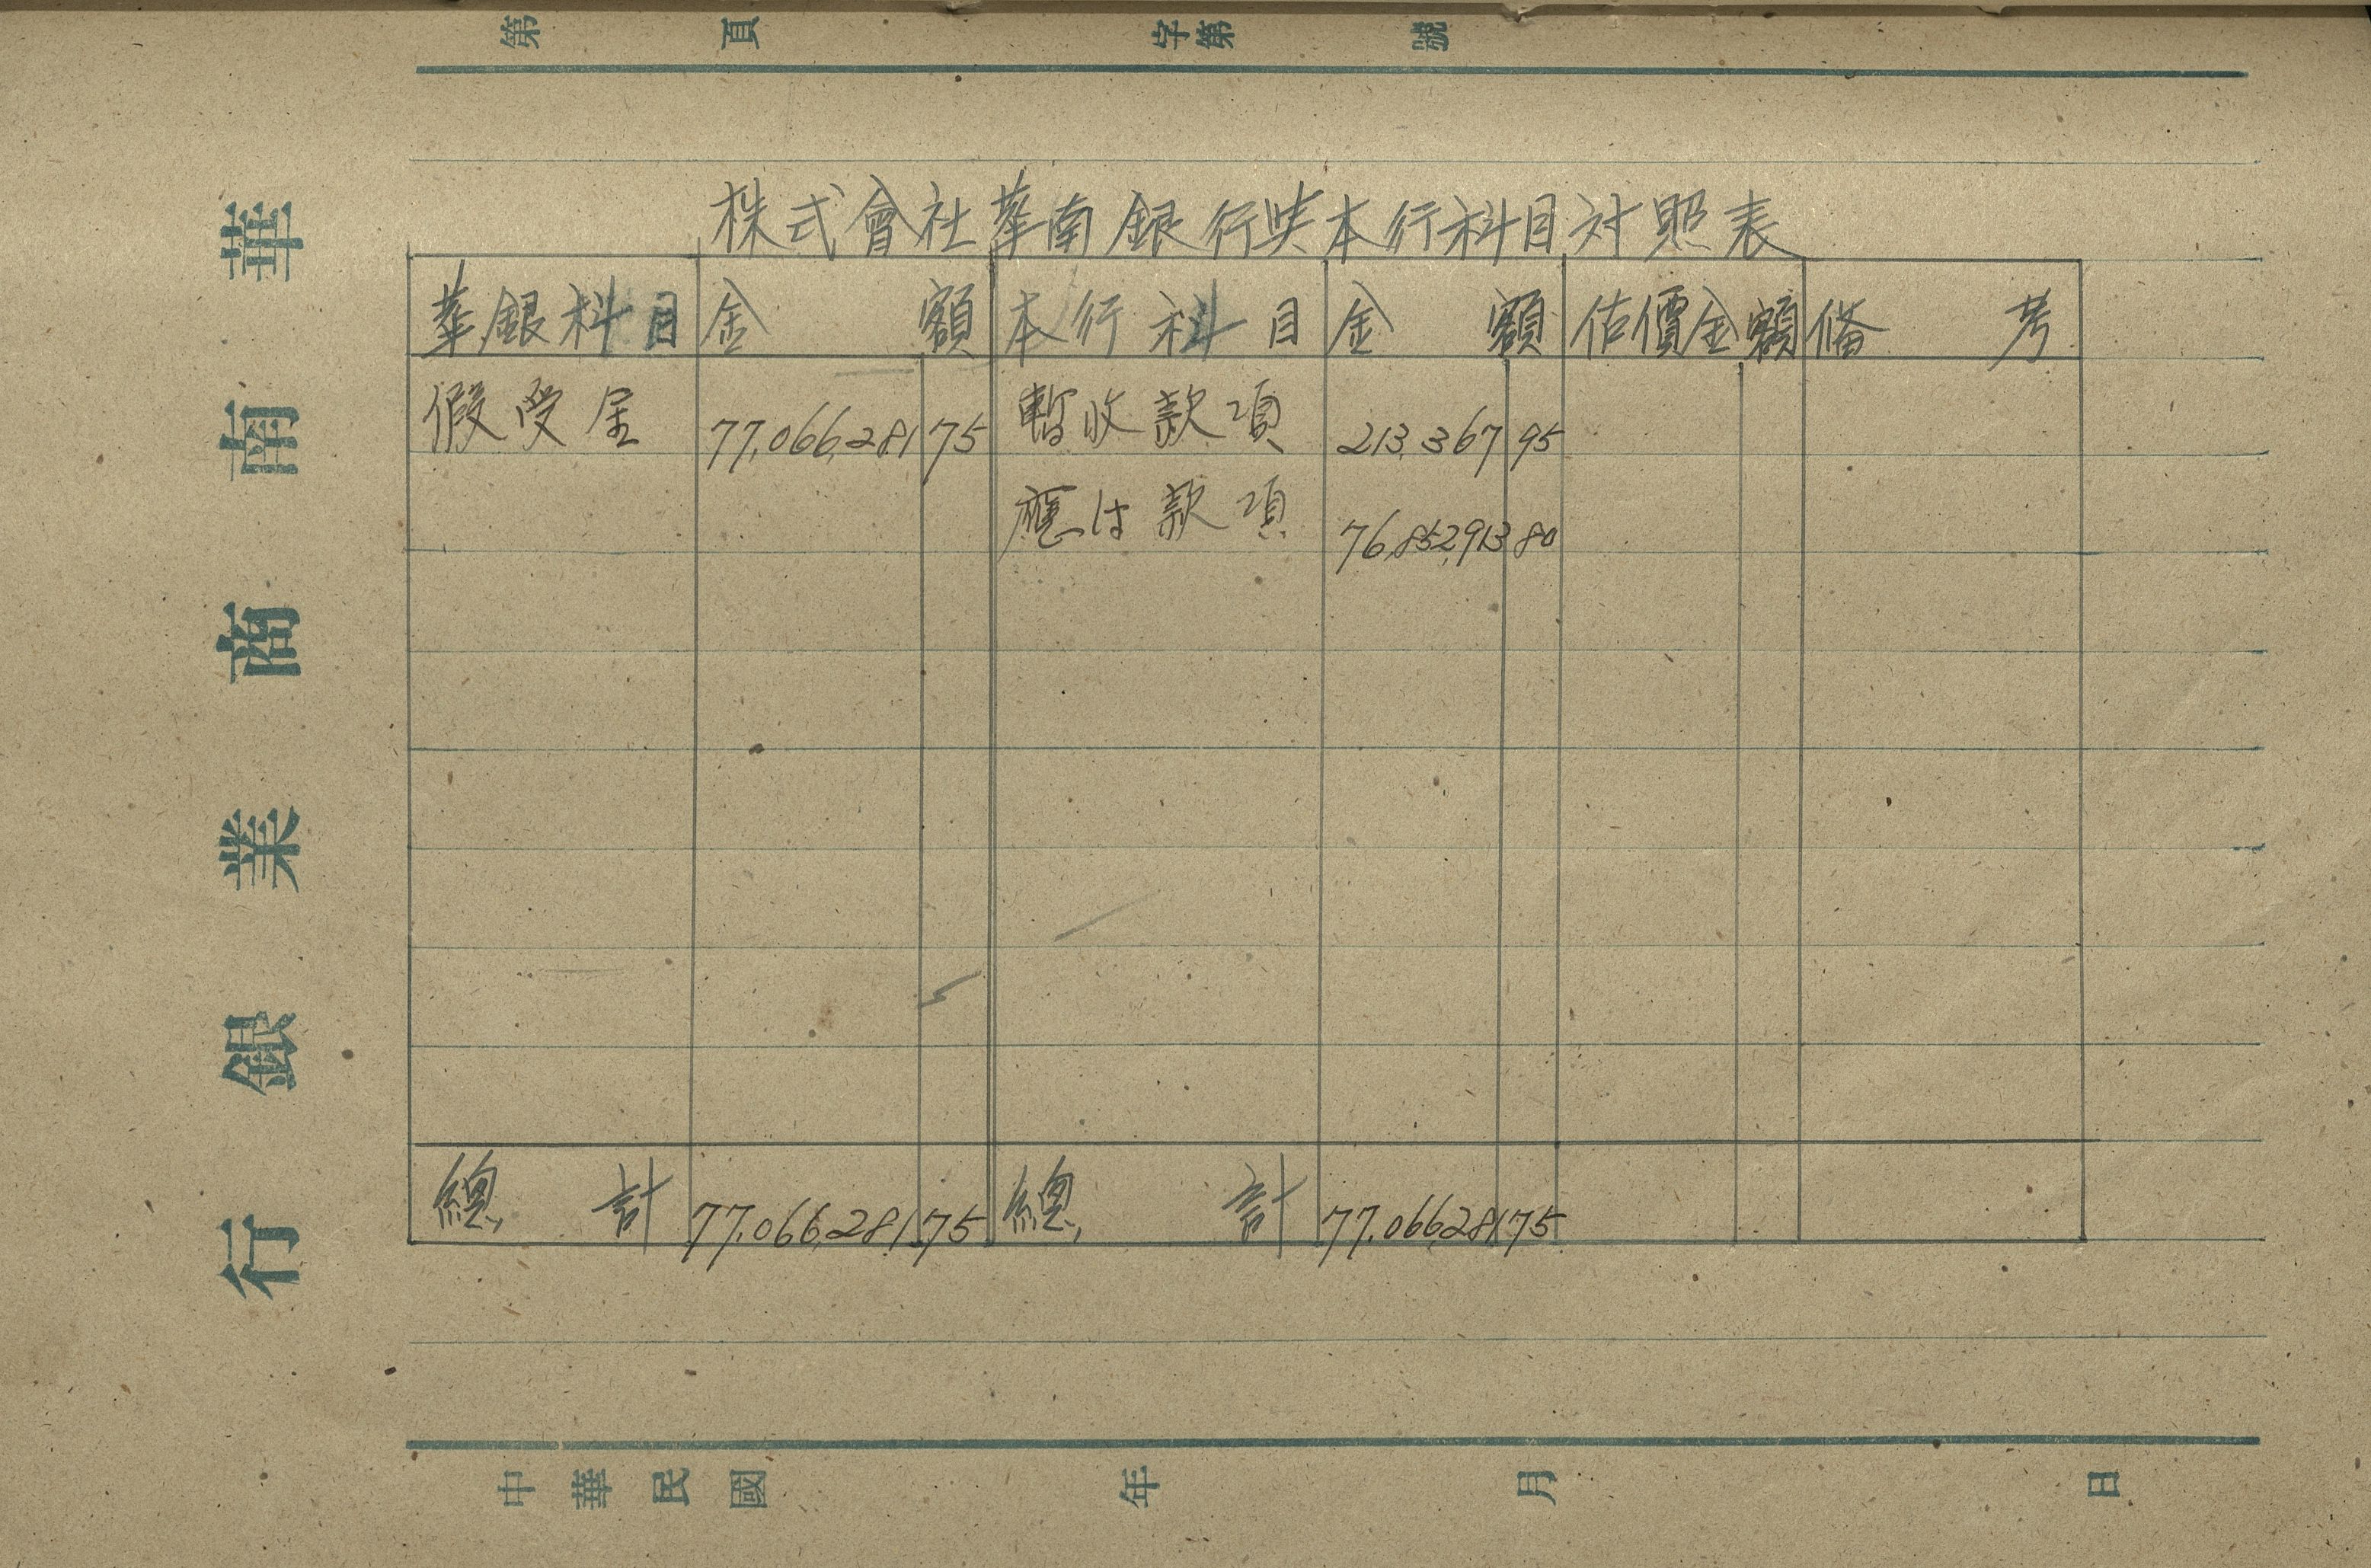 第 頁 字第 號
株式會社華南銀行與本行科目対照表
華銀科目 金 額 本行科目 金 額 估價金額 備 考
假受金 77,066,281 75 暫收款項 213,367 95
應付款項 76,852,913 80
總 計 77,066,281 75 總 計 77,066,281 75
華南商業銀行
中華民國 年 月 日